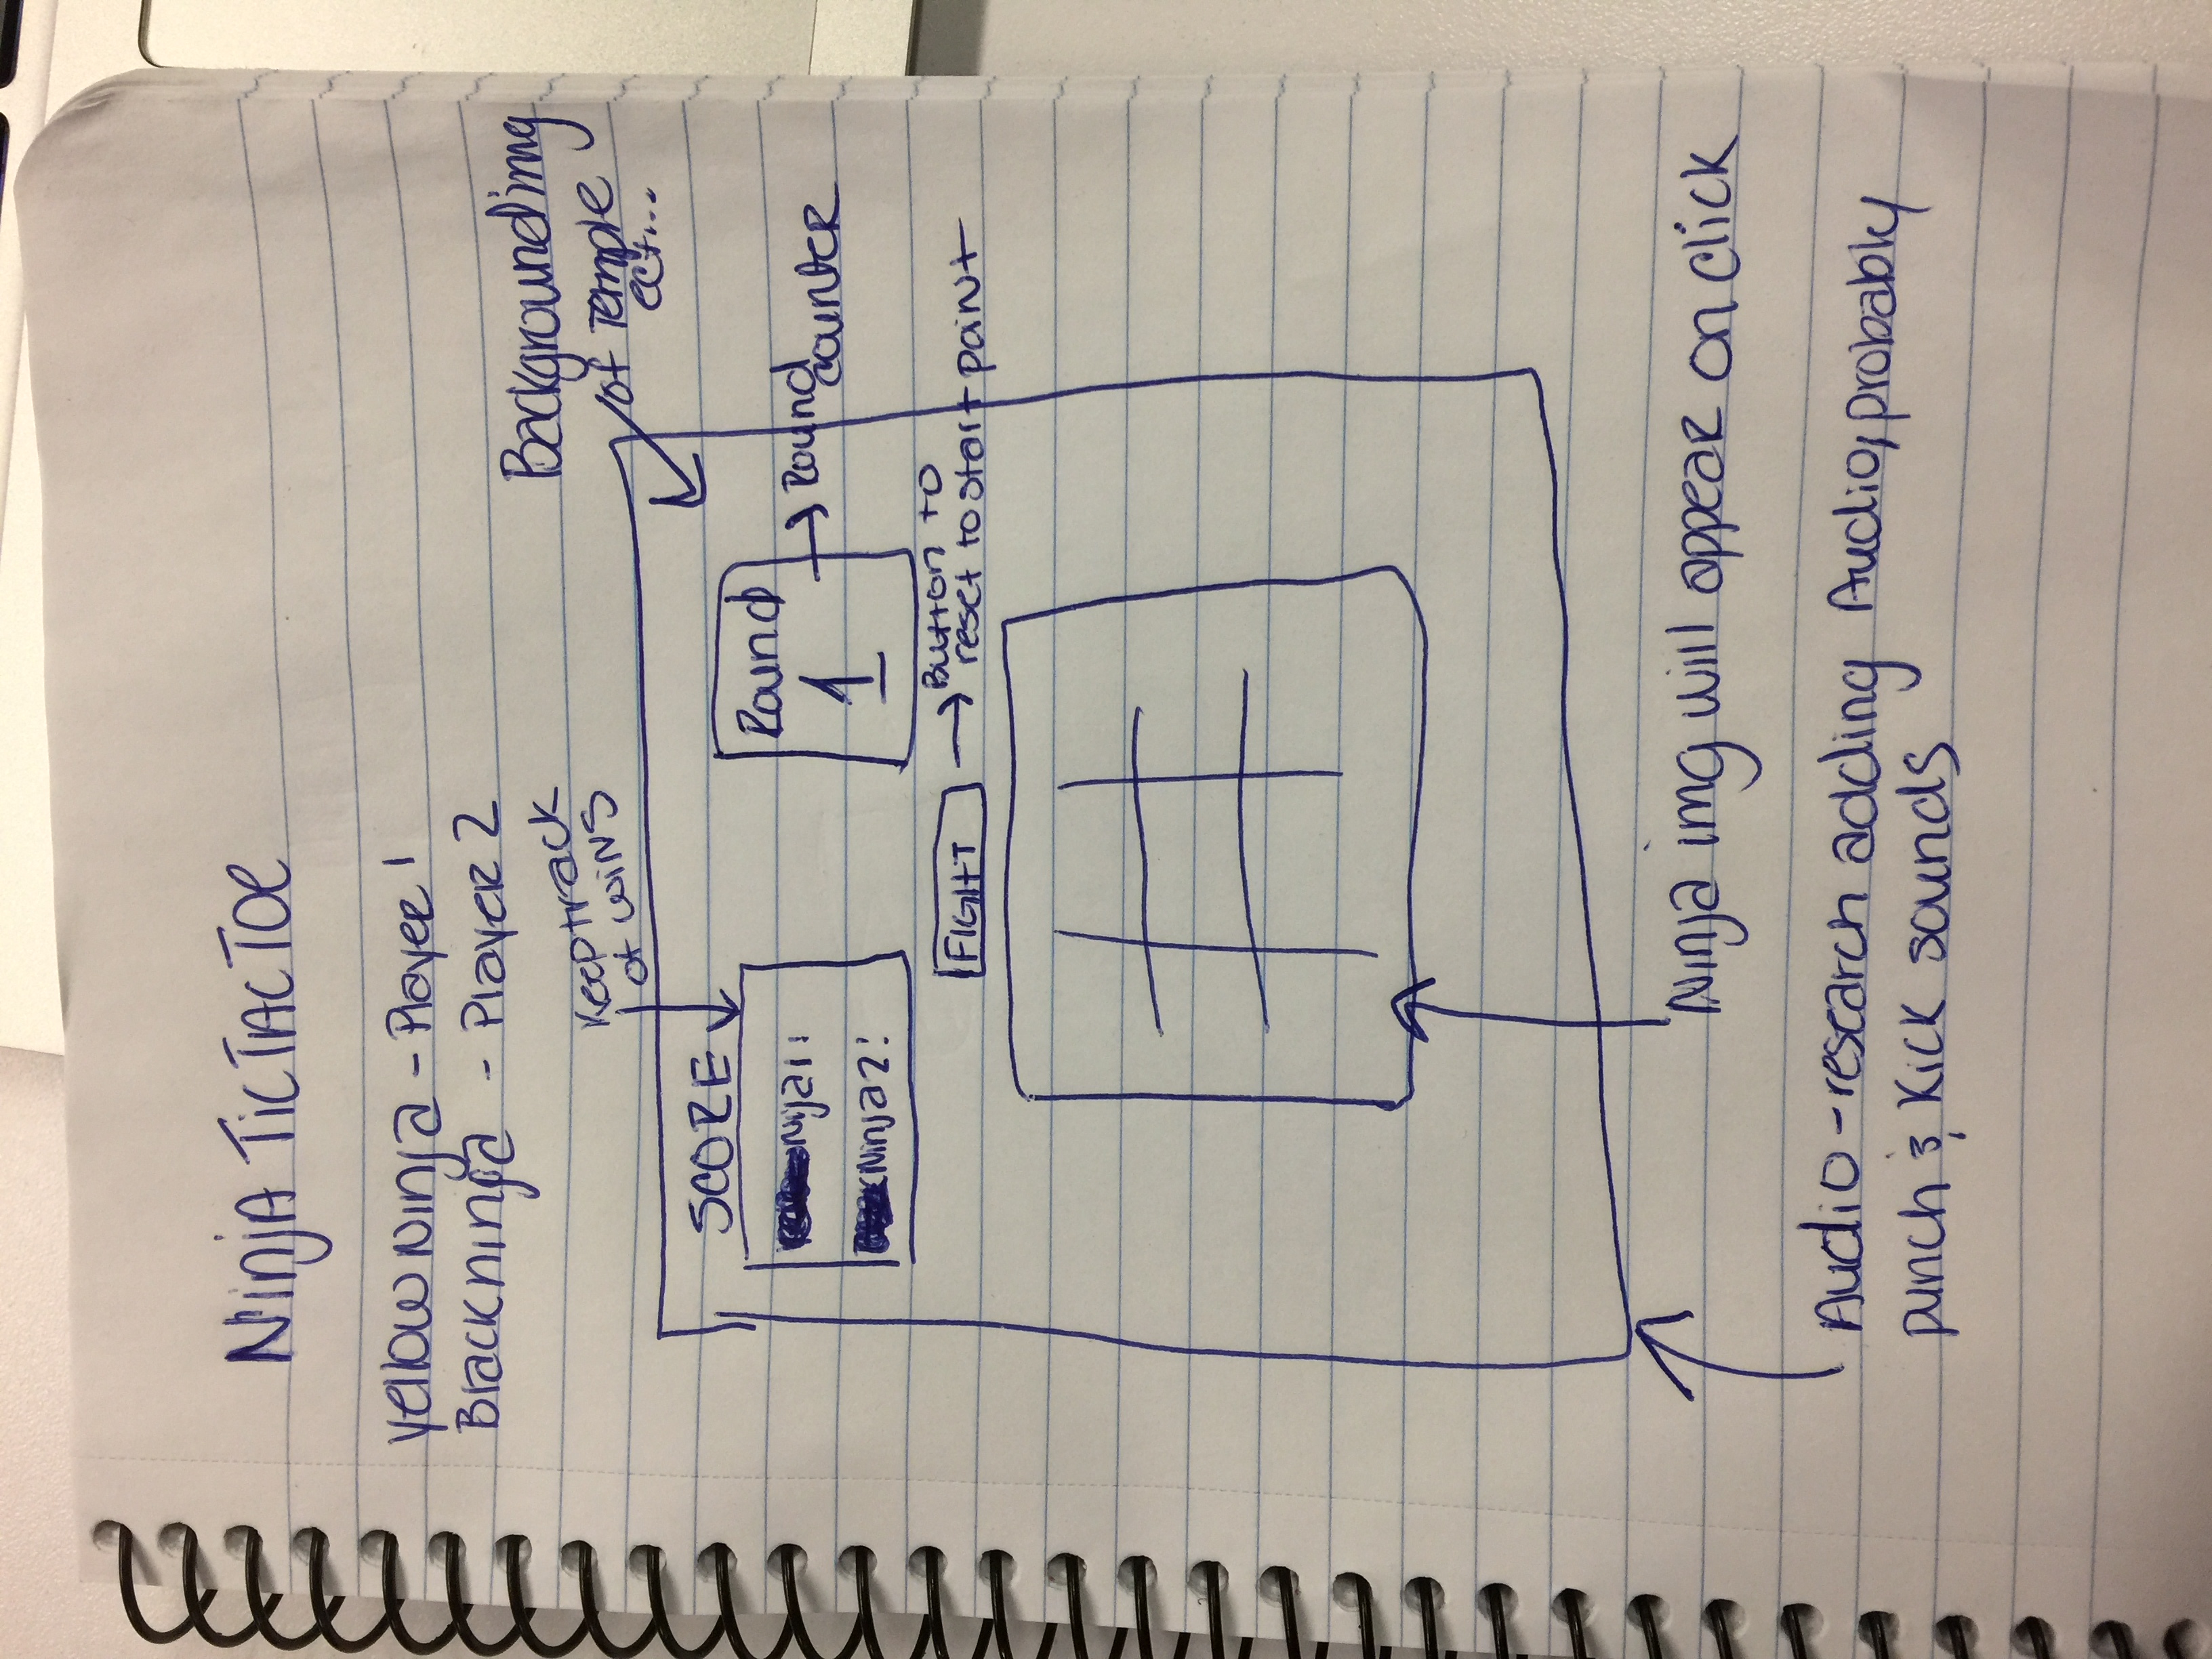 NinjA TicTACToe
Yellow Ninja - Player 1
Black ninja - Player 2
Keep track
of wins
Background img
of Temple
ect...
SCORE
Nija 1:
Ninja 2:
Round
1
Round
counter
FIGHT
Button to
reset to start point
Ninja img will appear on click
Audio - research adding Audio, probably
punch & Kick sounds